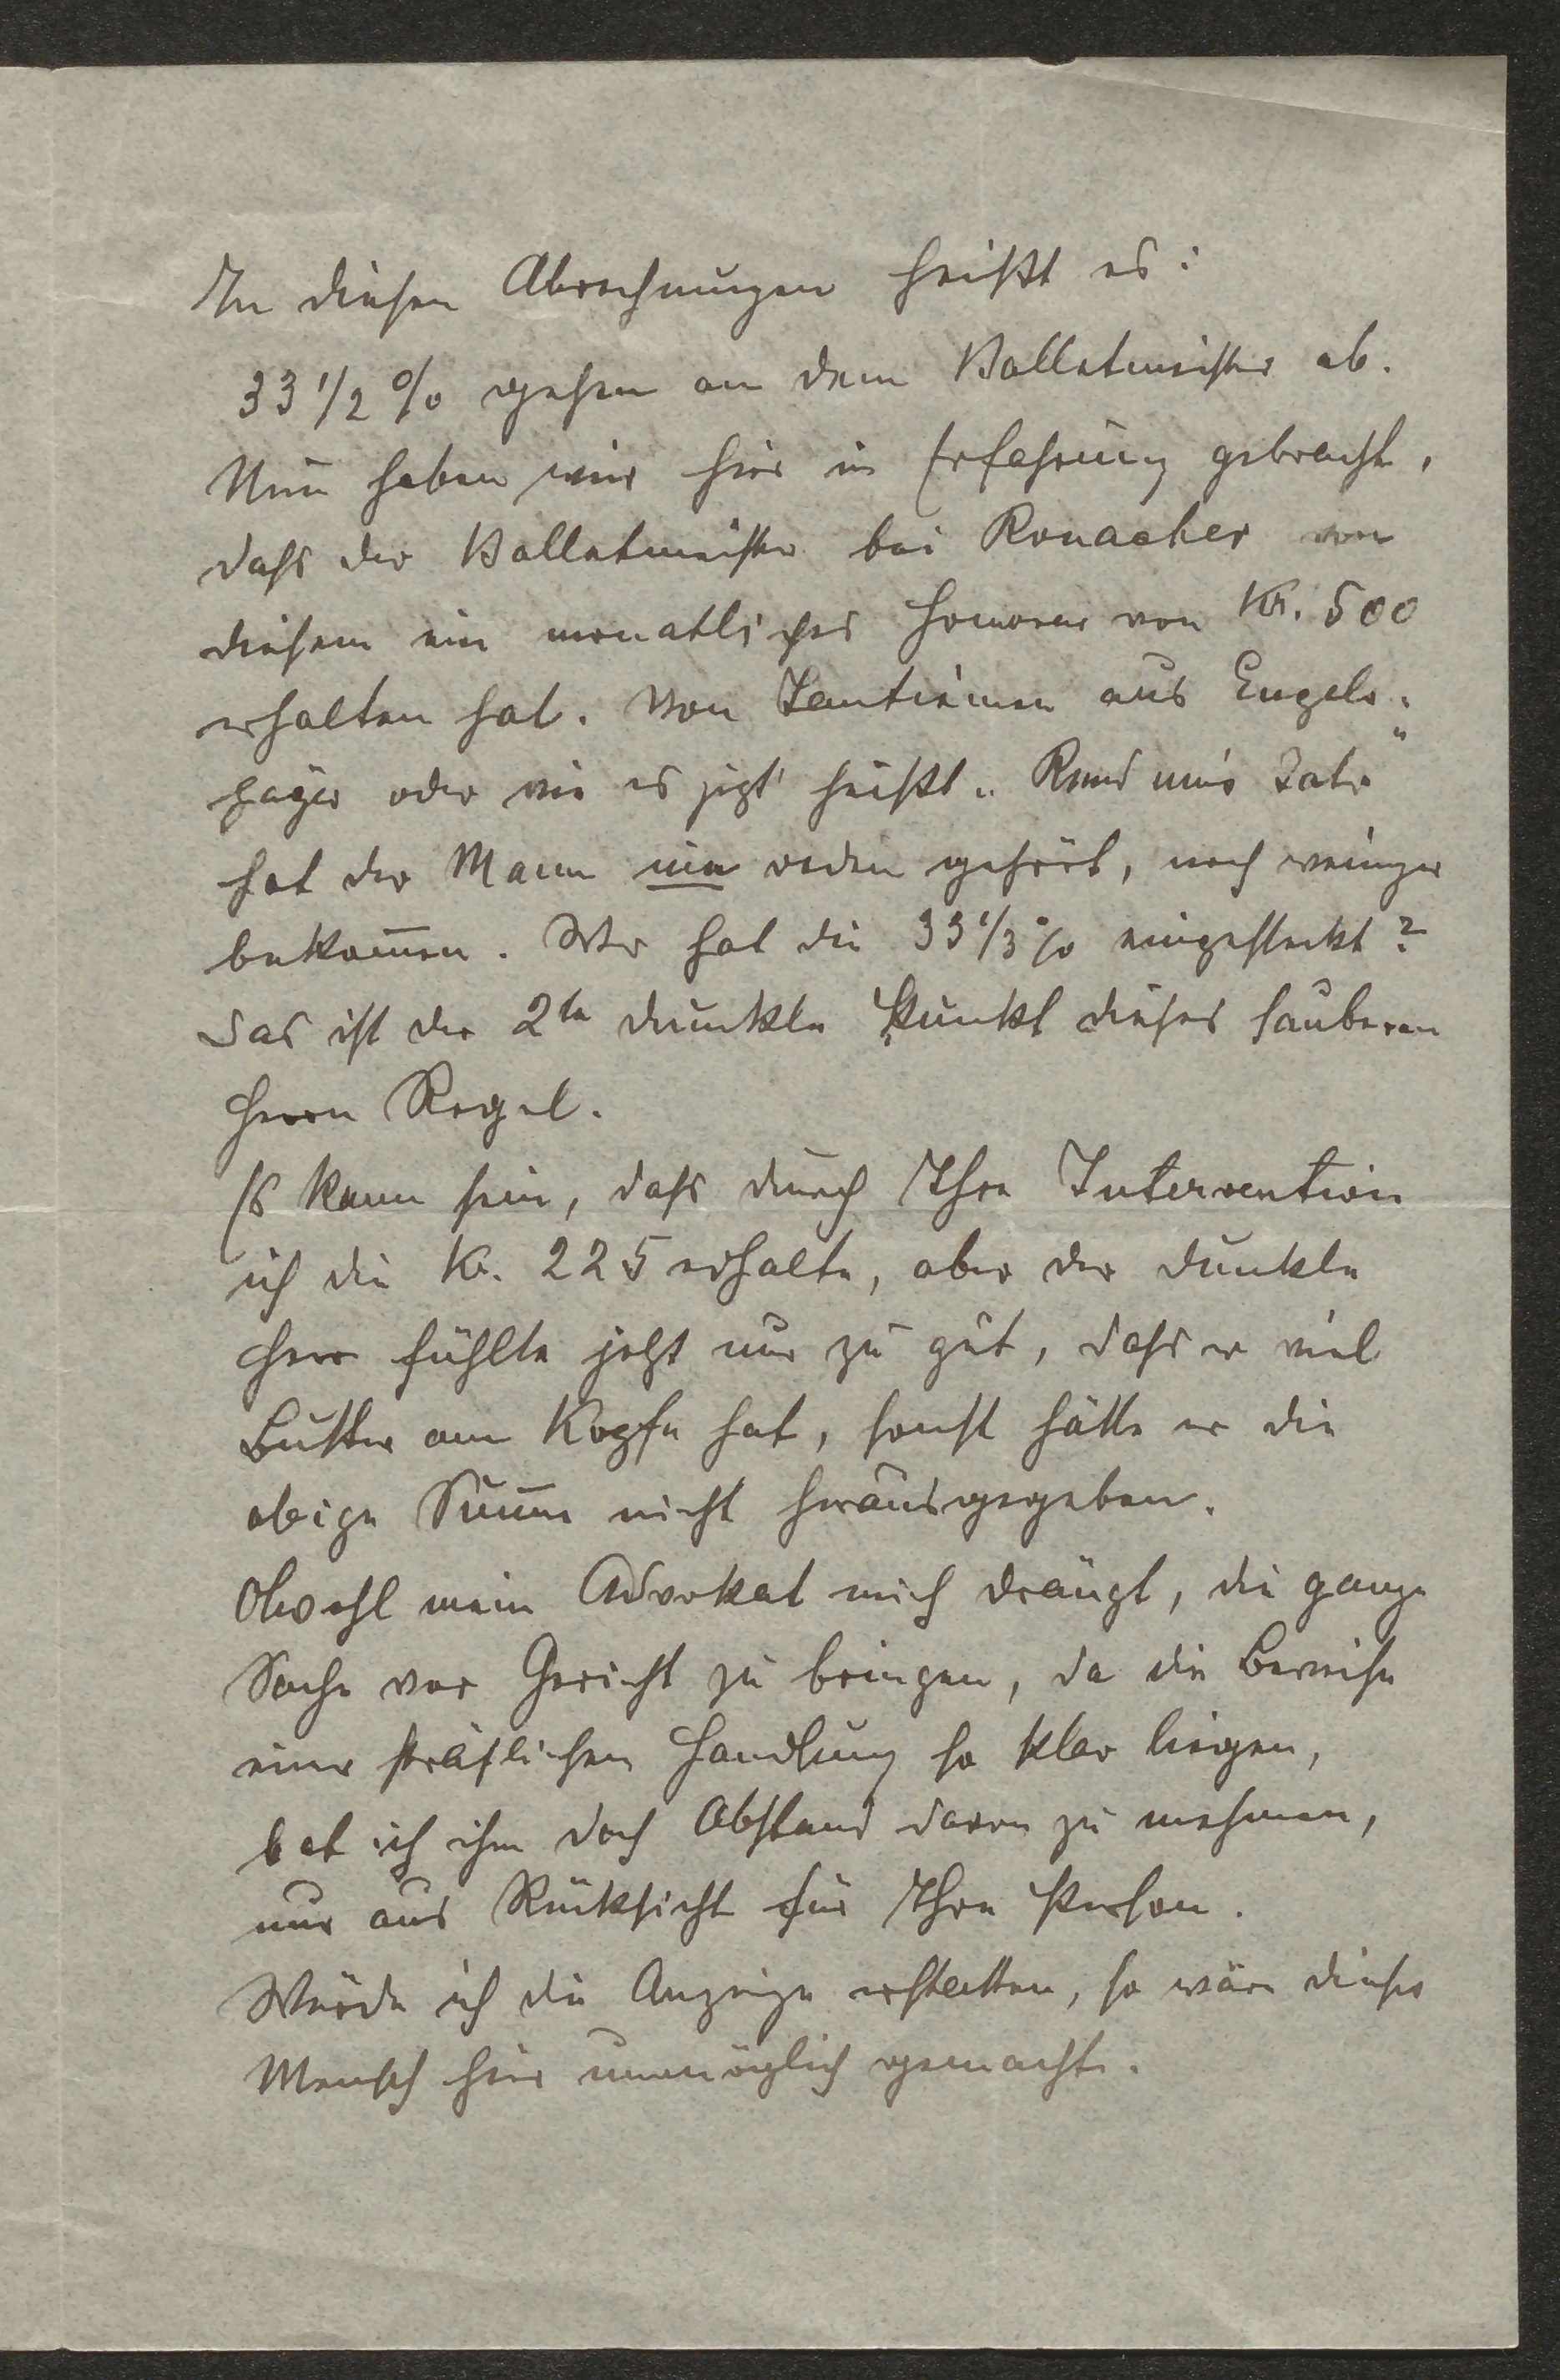 In diesen Abrechnungen heißt es:
33 1/2 % gehen an dem Balletmeister ab.
Nun haben wir hier in Erfahrung gebracht,
daß der Balletmeister bei Ronacher von
diesem ein monatliches Honorar von Kr. 500
erhalten hat. Von Tantièmen aus Engels-
jäger oder wie es jetzt heißt „Rund um's
hat der Mann nie reden gehört, noch weniger
bekom̅en. Wer hat die 33 1/3 % eingesteckt?
Das ist der 2te dunkle Punkt dieses sauberen
Herrn Regel.
Es kann sein, daß durch Ihre Intervention
ich die Kr. 225 erhalte, aber der dunkle
Herr fühlte jetzt nur zu gut, daß er viel
Butter am Kopfe hat, sonst hätte er die
obige Sum̅e nicht herausgegeben.
Obwohl mein Advokat mich drängt, die ganze
Sache vor Gericht zu bringen, da die Beweise
einer sträflichen Handlung so klar liegen,
bat ich ihn doch Abstand davon zu nehmen,
nur aus Rücksicht für Ihre Person.
Würde ich die Anzeige erstatten, so wäre dieser
Mensch hier unmöglich gemacht.